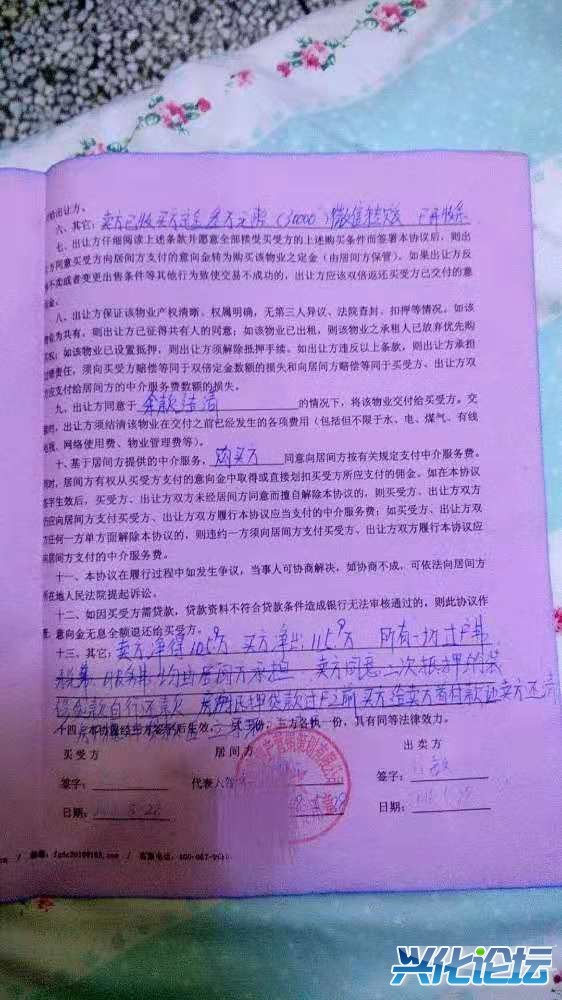 给出让方。
六、其它：卖方已收买方定金叁万元照（30000）微信转账
七、出让方仔细阅读上述条款并愿意全部接受买受方的上述购买条件而签署本协议后，则出
让方同意买受方向居间方支付的意向金转为购买该物业之定金（由居间方保管）。如果出让方反
不卖或者变更出售条件等其他行为致使交易不成功的，出让方应该双倍返还买受方已交付的意
金。
八、出让方保证该物业产权清晰、权属明确，无第三人异议、法院查封、扣押等情况。如该
业为共有，则出让方已征得共有人的同意；如该物业已出租，则该物业之承租人已放弃优先购
权；如该物业已设置抵押，则出让方须解除抵押手续。如出让方违反以上条款，则出让方承担
责任，须向买受方赔偿等同于双倍定金数额的损失和向居间方赔偿等同于买受方、出让方双
应支付给居间方的中介服务费数额的损失。
九、出让方同意于 余款结清 的情况下，将该物业交付给买受方。交
时，出让方须结清该物业在交付之前已经发生的各项费用（包括但不限于水、电、煤气、有线
电视、网络使用费、物业管理费等）。
十、基于居间方提供的中介服务， 购买方 同意向居间方按有关规定支付中介服务费。
时，居间方有权从买受方支付的意向金中取得或直接划扣买受方所应支付的佣金。如在本协议
字生效后，买受方、出让方双方未经居间方同意而擅自解除本协议的，则买受方、出让方双方
应向居间方支付买受方、出让方双方履行本协议应当支付的中介服务费；如买受方、出让方双
方任何一方单方面解除本协议的，则违约一方须向居间方支付买受方、出让方双方履行本协议应
向居间方支付的中介服务费。
十一、本协议在履行过程中如发生争议，当事人可协商解决，如协商不成，可依法向居间方
所在地人民法院提起诉讼。
十二、如因买受方需贷款，贷款资料不符合贷款条件造成银行无法审核通过的，则此协议作
意向金无息全额退还给买受方。
十三、其它：卖方净得105.9万 买方净出115.9万 所有一切过户
均由居间方承担 卖方同意二次抵押的装
贷款过户之前买方给卖方首付款让卖方还清
十四、本协议经三方签字后生效， 三方各执一份，具有同等法律效力。
买受方 居间方 出卖方
签字： 代表人 签字：
日期： 日期：
兴化论坛